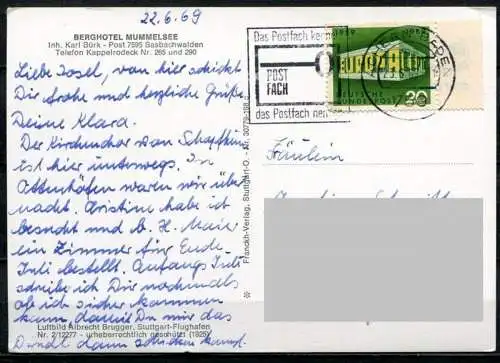 22.6.69
BERGHOTEL MUMMELSEE
Inh. Karl Bürk - Post 7595 Sasbachwalden
Telefon Kappelrodeck Nr. 265 und 290
Liebe Josel, von hier schickt
Dir frohe und herzliche Grüße
Deine Klara.
Der Kirchenchor von
ist hier unterwegs. In
Ottenhöfen waren wir über
nacht. Christine habe ich
besucht und b. H. Maier
ein Zimmer für Ende
Juli bestellt. Anfangs Juli
schreibe ich Dir nochmals
ob ich sicher kommen
kann, damit Du mir das
dann schicken kannst.
Luftbild Albrecht Brugger, Stuttgart-Flughafen
Nr. 2/12277 - urheberrechtlich geschützt (1825)
Franckh-Verlag, Stuttgart-O.
Das Postfach
POST
FACH
das Postfach
1969
EUROPA CEPT
DEUTSCHE
BUNDESPOST
20
Fräulein